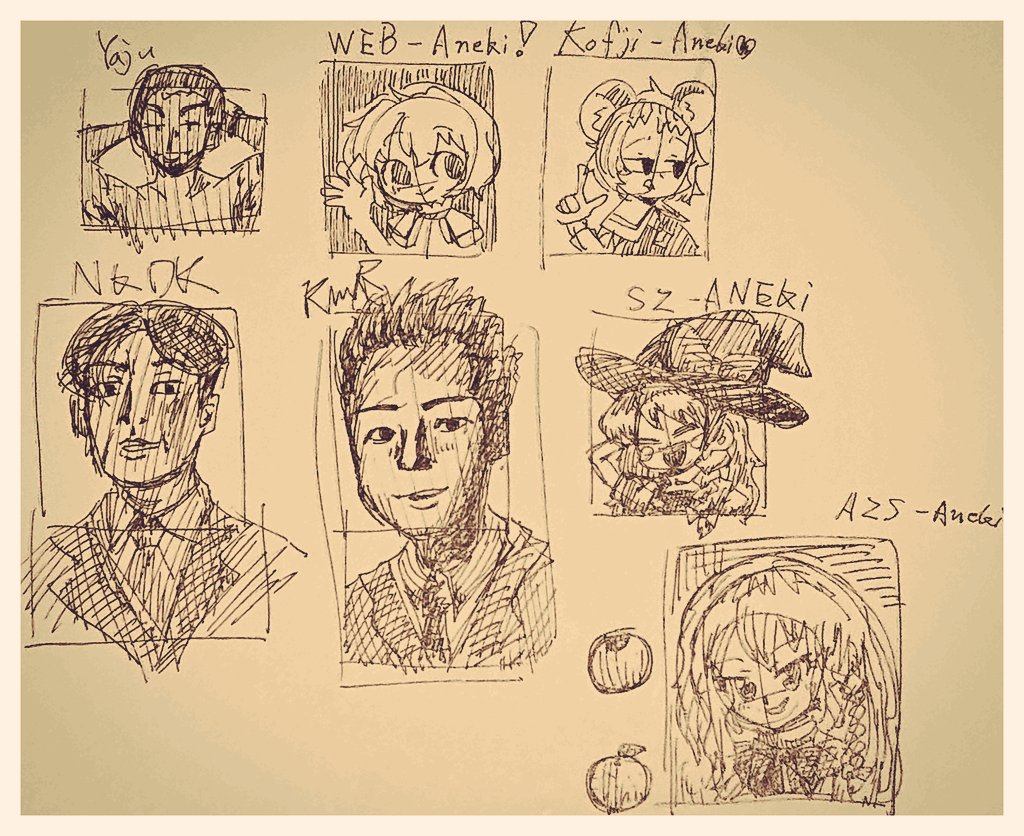 Yaju
WEB-Aneki!
Kofji-Aneki
NKDK
KmR
SZ-ANEki
AZS-Aneki